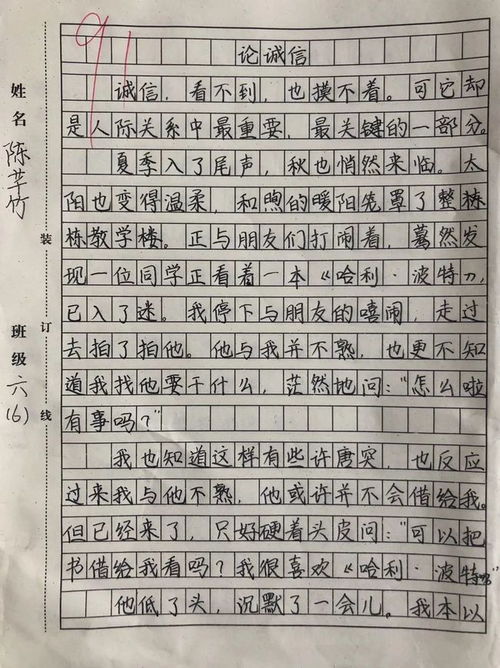 91
论诚信
诚信，看不到，也摸不着。可它却
是人际关系中最重要，最关键的一部分。
夏季入了尾声，秋也悄然来临。太
阳也变得温柔，和煦的暖阳笼罩了整栋
栋教学楼。正与朋友们打闹着，蓦然发
现一位同学正看着一本《哈利·波特》，
已入了迷。我停下与朋友的嘻闹，走过
去拍了拍他。他与我并不熟，也更不知
道我找他要干什么，茫然地问：“怎么啦
有事吗？”
我也知道这样有些许唐突，也反应
过来我与他不熟，他或许并不会借给我。
但已经来了，只好硬着头皮问：“可以把
书借给我看吗？我很喜欢《哈利·波特》”
他低了头，沉默了一会儿。我本以
姓名 陈芊竹
班级 六(6)
装
订
线